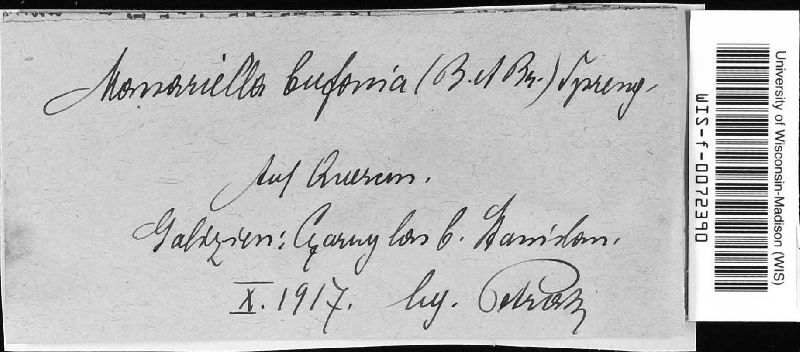 Massariella bufonia (B. et Br.) Speg.
Auf Quercus.
Galizien: Czarny las b. Stanislau.
X. 1917. leg. Petrak
University of Wisconsin-Madison (WIS)
WIS-f-0072390